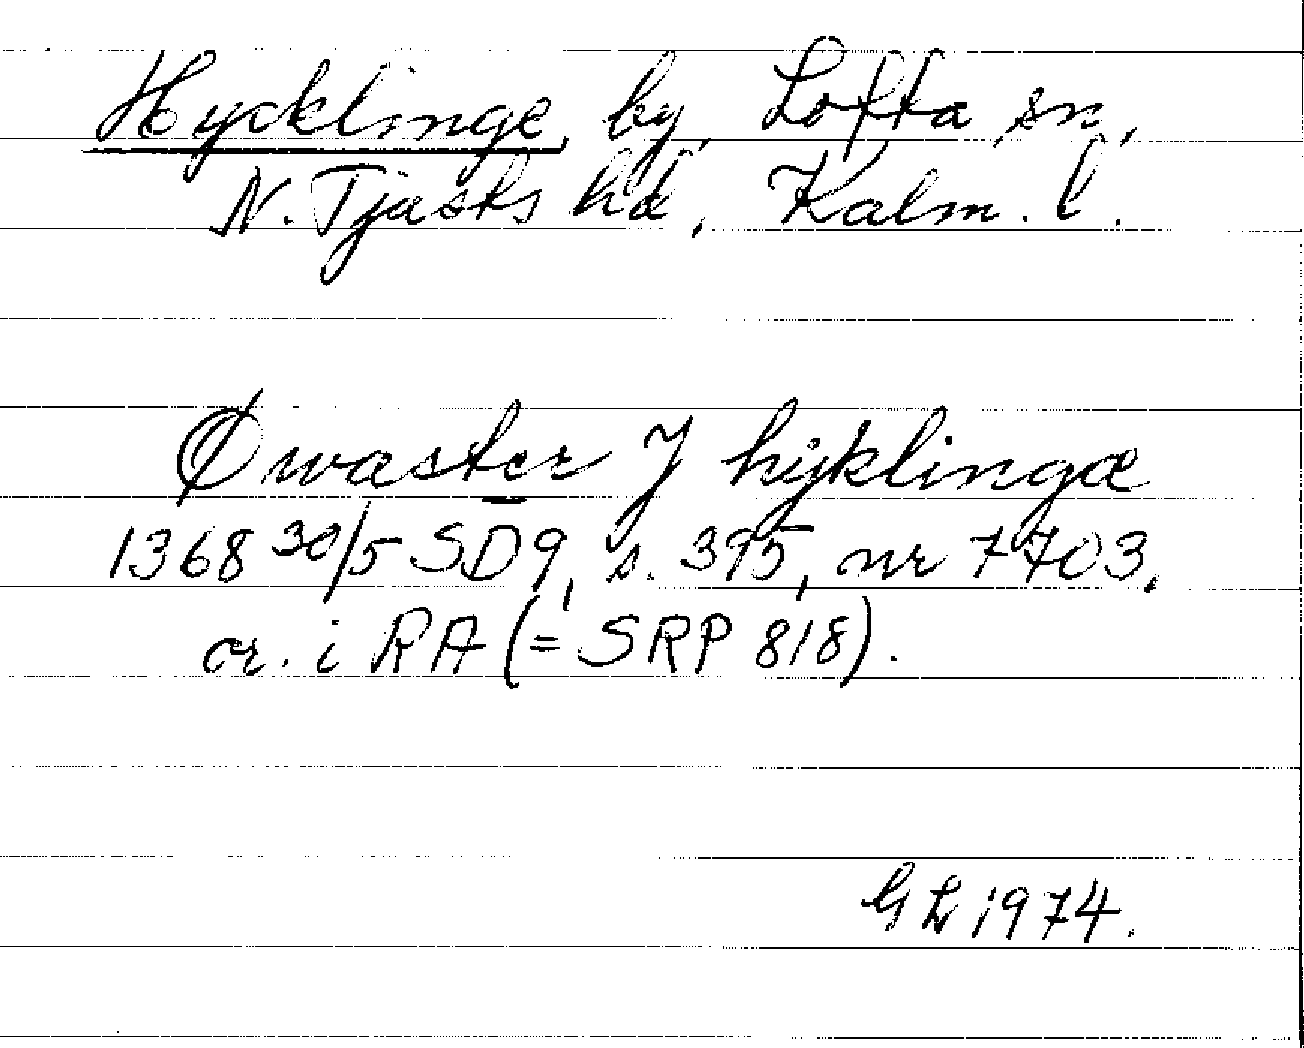 Hycklinge, by, Lofta sn,
N. Tjusts hd, Kalm. l.
Øwæster J hyklingæ
1368 30/5 SD9, s. 395, nr 7703,
or. i RA (= SRP 818).
GL 1974.